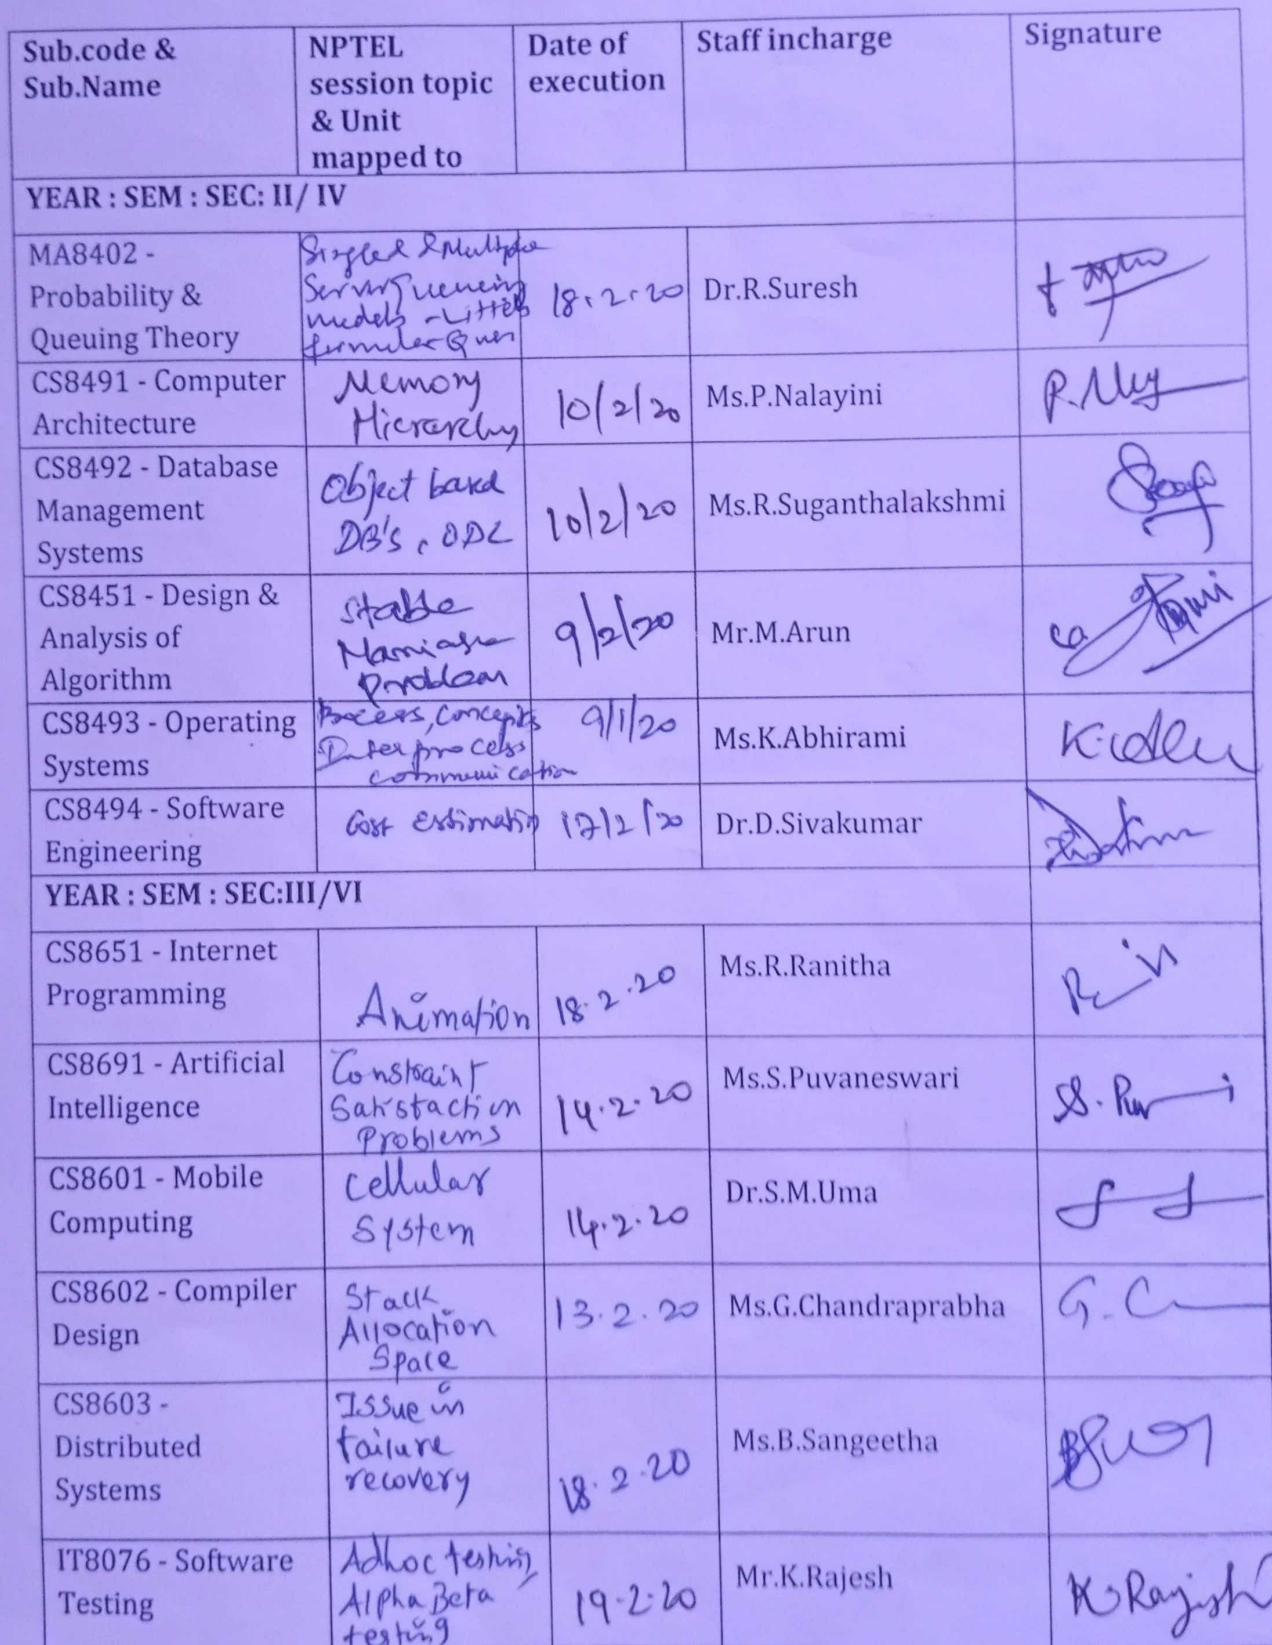 Sub.code & Sub.Name | NPTEL session topic & Unit mapped to | Date of execution | Staff incharge | Signature
YEAR : SEM : SEC: II/ IV
MA8402 - Probability & Queuing Theory | & Multiple Server Queueing models - | 18.2.20 | Dr.R.Suresh
CS8491 - Computer Architecture | Memory Hierarchy | 10/2/20 | Ms.P.Nalayini
CS8492 - Database Management Systems | Object based DB's, ODL | 10/2/20 | Ms.R.Suganthalakshmi
CS8451 - Design & Analysis of Algorithm | Stable Marriage Problem | 9/2/20 | Mr.M.Arun
CS8493 - Operating Systems | Process, Concepts Inter process communication | 9/1/20 | Ms.K.Abhirami
CS8494 - Software Engineering | Cost Estimation | 17/2/20 | Dr.D.Sivakumar
YEAR : SEM : SEC:III/VI
CS8651 - Internet Programming | Animation | 18.2.20 | Ms.R.Ranitha
CS8691 - Artificial Intelligence | Constraint Satisfaction Problems | 14.2.20 | Ms.S.Puvaneswari
CS8601 - Mobile Computing | Cellular System | 14.2.20 | Dr.S.M.Uma
CS8602 - Compiler Design | Stack Allocation Space | 13.2.20 | Ms.G.Chandraprabha | G.C
CS8603 - Distributed Systems | Issue in failure recovery | 18.2.20 | Ms.B.Sangeetha
IT8076 - Software Testing | Adhoc testing, Alpha Beta testing | 19.2.20 | Mr.K.Rajesh | K Rajesh